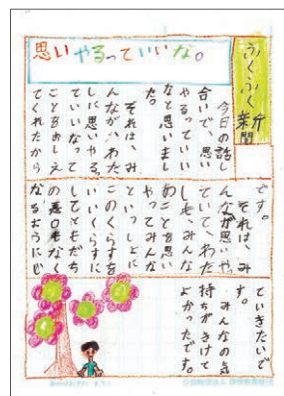 ふくふく
新聞
思いやるっていいな。
今日の話し
合いで、思い
やるっていい
なと思いまし
た。
それは、み
んながいわた
しに思いやる。
っていいなって
ことをおしえ
てくれたから
です。
それは、み
んなが思いやっ
ていて、わた
しも、みんな
のことを思い
やってみんな
といっしょに
このくらすを
いいくらすに
してともだち
の悪口もなく
なるようにし
ていきたいで
す。
みんなの気
持ちがきけて
よかったです。